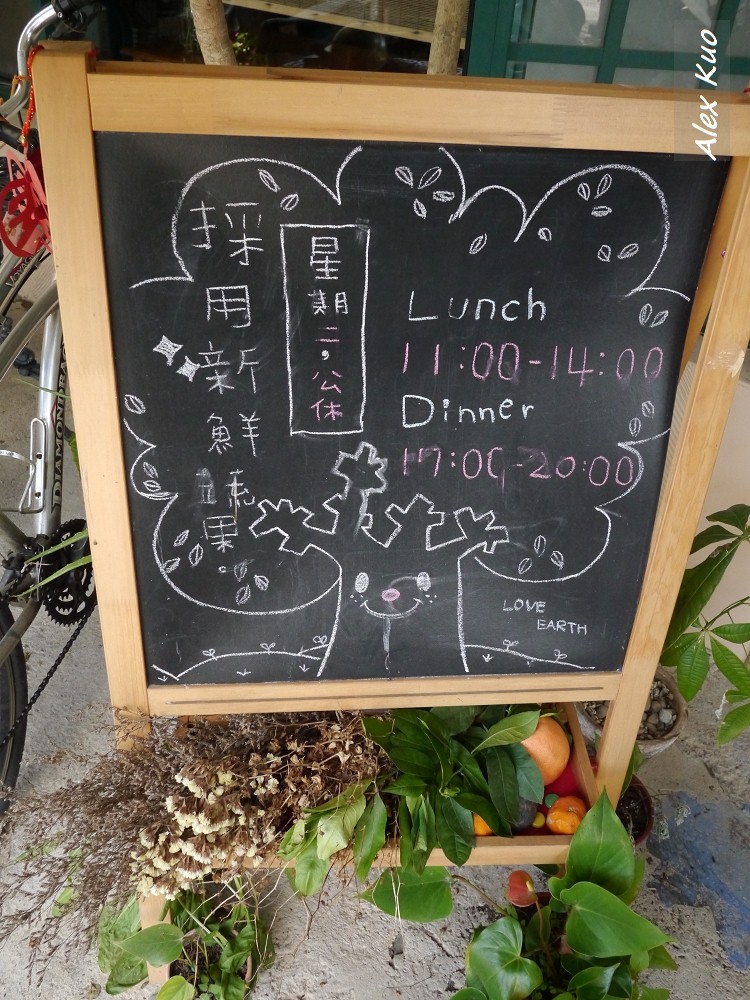 Alex Kuo
採用新鮮蔬果。
星期二,公休
Lunch
11:00-14:00
Dinner
17:00-20:00
LOVE
EARTH
DIAMONDBACK